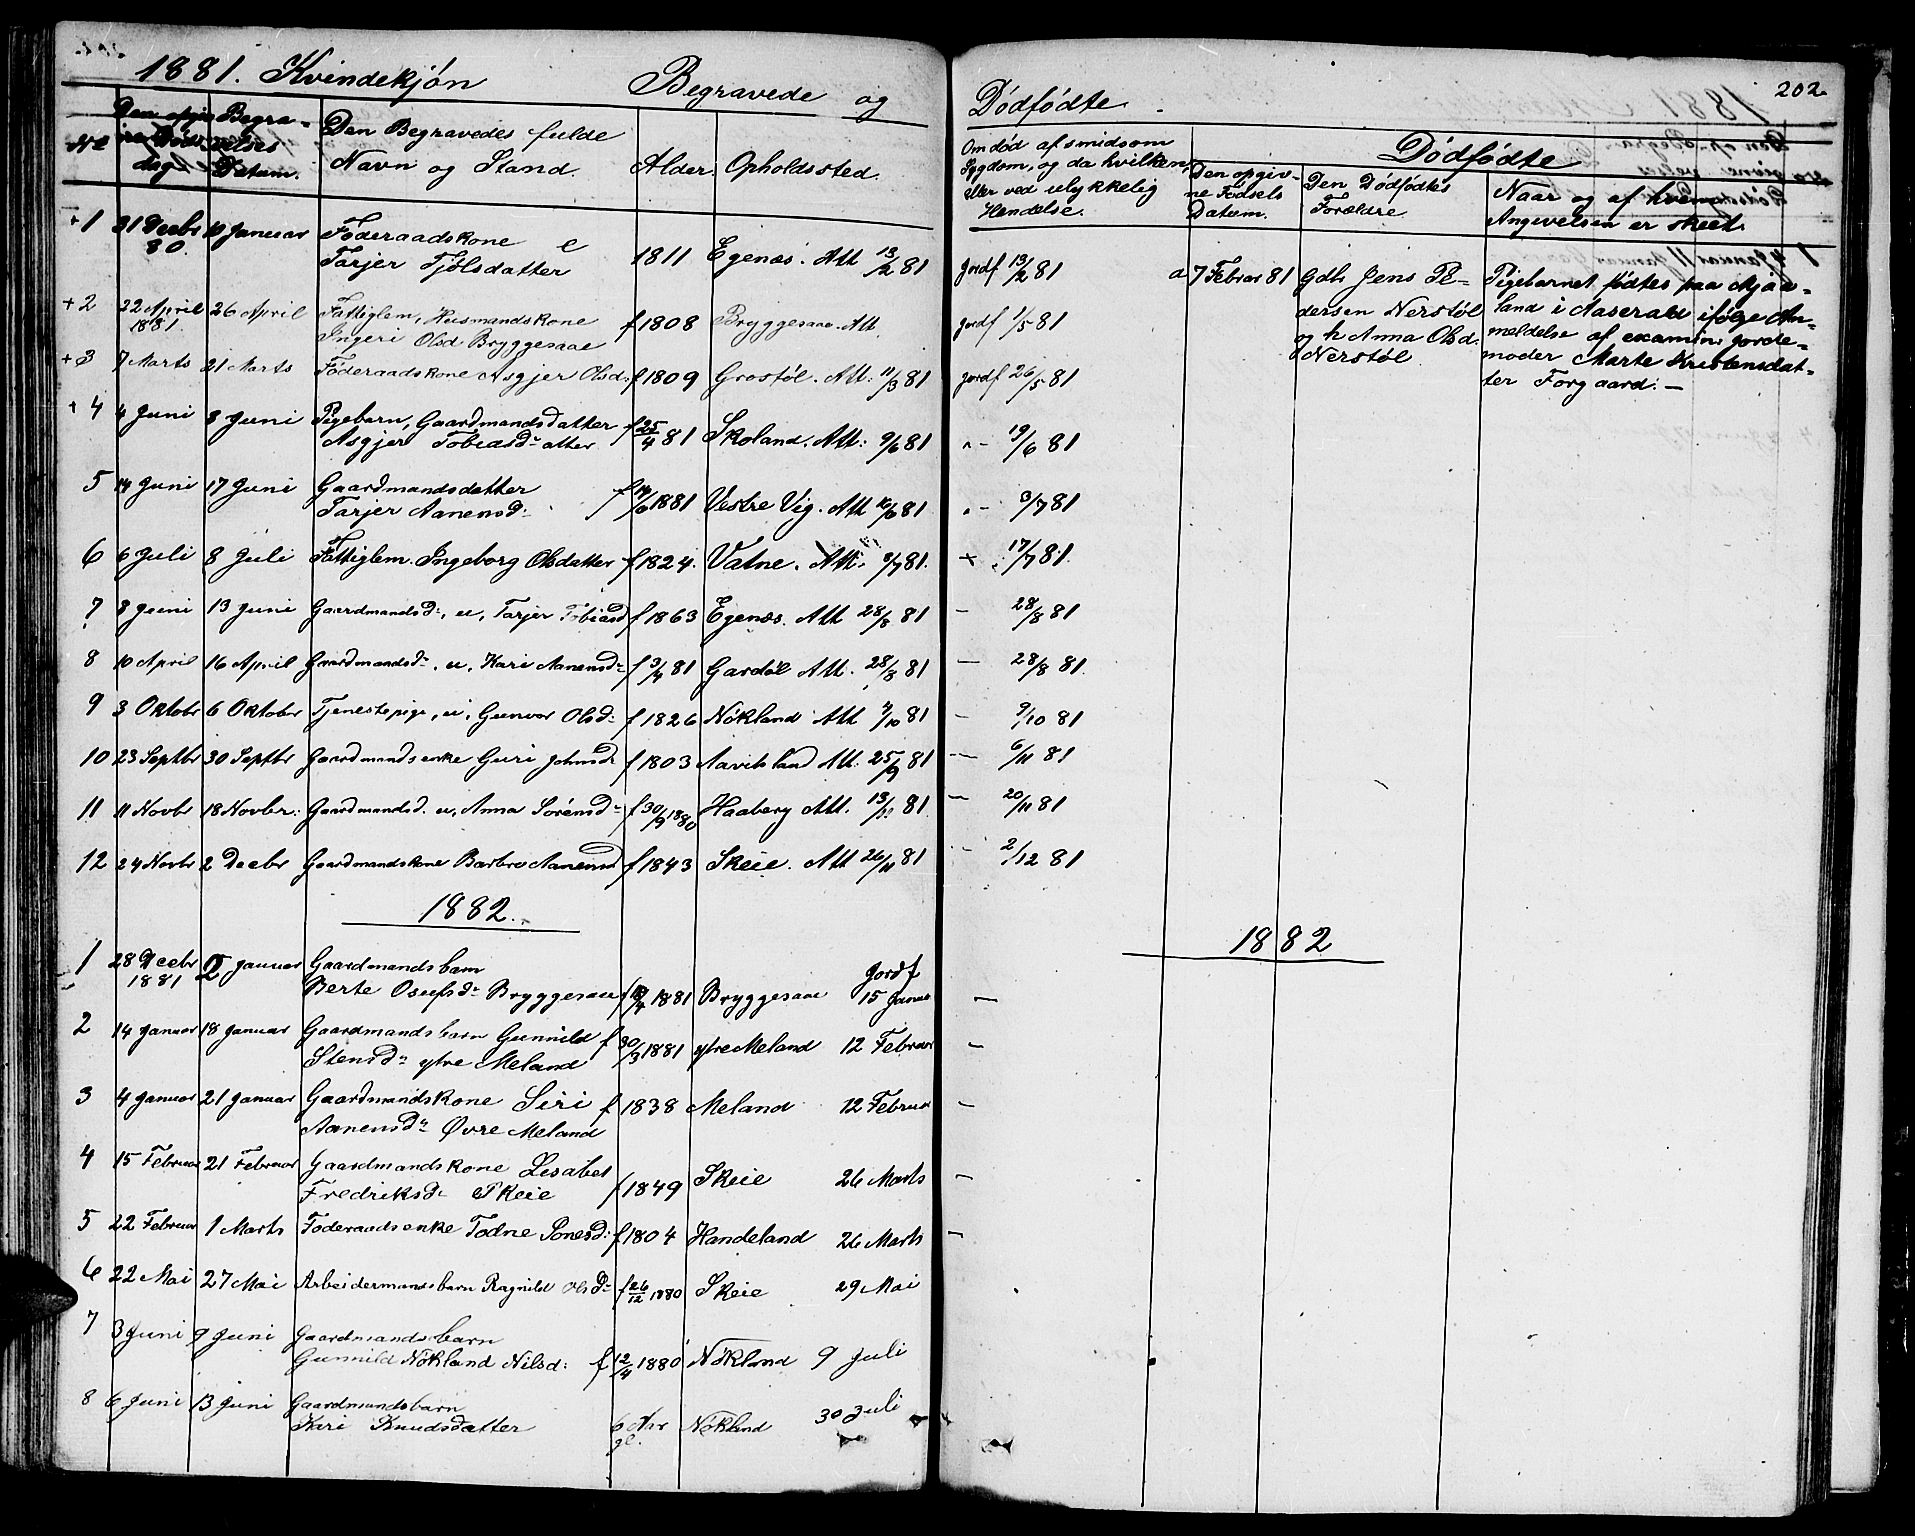 1881. Kvindekjön Begravede og Dödfödte. 202.
No
Den opgivne Döds dag
Begravelses Datum.
Den Begravedes fulde Navn og Stand.
Alder.
Opholdssted.
Om död af smidsom Sygdom, og da hvilken, eller ved ulykkelig Hendelse.
Dödfödte
Den opgivne Födsels Datum.
Den Dödfödtes Forældre.
Naar og af hvem Angivelsen er skeet.
+1 31 Decbr 80. 10 Januar Föderaadskone e
Tarjer Tjölsdatter 1811 Egenæs. Att 13/2 81 Jordf 13/2 81
a 7 Februar 81 Gdbr Jens Pe-
dersen Nerstöl
og h Anna Olsd.
Nerstöl
Pigebarnet födtes paa Mjaa-
land i Aaseral ifölge An-
meldelse af examin: jorde-
moder Marte Kristensdat-
ter Forgaard. —
+2 22 April 1881. 26 April Fattiglem, Husmandskone
Ingeri Olsd Bryggesaae f 1808 Bryggesaae. Att Jordf 1/5 81
+3 7 Marts 21 Marts Föderaadskone Asgjer Olsd. f 1809 Grostöl. Att: 11/3 81 Jordf 26/5 81
+4 4 Juni 8 Juni Pigebarn, Gaardmandsdatter
Asgjer Tobiasd-atter f 25/4 81 Skoland. Att: 9/6 81 „- 19/6 81
5 14 Juni 17 Juni Gaardmandsdatter
Tarjer Aanensd: f 14/6 1881 Vestre Vig. Att 16/6 81 „- 3/7 81
6 6 Juli 8 Juli Fattiglem. Ingeborg Olsdatter f 1824. Vatne. Att. 8/7 81. + 17/7 81.
7 8 Juni 13 Juni Gaardmandsd:, u, Tarjer Tobiasd f 1863 Egenæs. Att 28/8 81 — 28/8 81
8 10 April 16 April Gaardmandsd:, u, Kari Aanensd: f 3/4 81 Gardöl Att. 28/8 81 — 28/8 81.
9 3 Oktobr 6 Oktober Tjenestepige, u, Gunvor Olsd: f 1826 Nökland Att 4/10 81 — 9/10 81
10 23 Septbr 30 Septbr Gaardmandsenke Guri Johnsd: f 1803 Aavitsland Att: 25/9 81 — 6/11 81
11 11 Novbr 18 Novber: Gaardmandsd. u, Anna Sörensd: f 30/9 1880 Haaberg Att. 13/11 81. — 20/11 81
12 24 Novbr 2 Decbr Gaardmandskone Barbro Aanensd f 1843 Skeie. Att 26/11 81 — 2/12 81
1882. 1882
1 28 Decbr 1881 2 Januar Gaardmandsbarn
Berte Osufsd: Bryggesaae f 18/4 1881 Bryggesaae Jordf 15 Januar —
2 14 Januar 18 Januar Gaardmandsbarn Gunnild
Stensd: ytre Meland f 30/3 1881 ytre Meland 12 Februar —
3 4 Januar 21 Januar Gaardmandskone Siri
Aanensd: Övre Meland f 1838 Meland 12 Februar —
4 15 Februar 21 Februar Gaardmandskone Lisabet
Fredriksd: Skeie f 1849 Skeie 26 Marts —
5 22 Februar 1 Marts Föderaadsenke Todne Sonesd: f 1804 Handeland 26 Marts —
6 22 Mai 27 Mai Arbeidermandsbarn Ragnild Olsd: f 26/12 1880 Skeie 29 Mai
7 3 Juni 9 Juni Gaardmandsbarn
Gunnild Nökland Nilsd: f 12/4 1880 Nökland 9 Juli
8 6 Juni 13 Juni Gaardmandsbarn
Kari Knudsdatter 6 Aar gl. Nökland 30 Juli